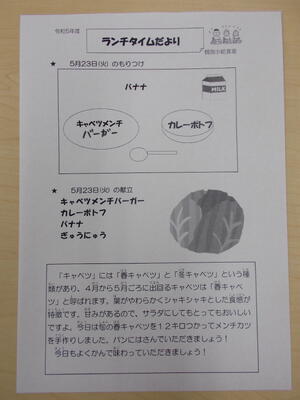 令和5年度
ランチタイムだより
★ 5月23日(火)のもりつけ
バナナ
MILK
キャベツメンチ
バーガー
カレーポトフ
★ 5月23日(火)の献立
キャベツメンチバーガー
カレーポトフ
バナナ
ぎゅうにゅう
「キャベツ」には「春キャベツ」と「冬キャベツ」という種
類があり、4月から5月ごろに出回るキャベツは「春キャベ
ツ」と呼ばれます。葉がやわらかくシャキシャキとした食感が
特徴です。甘みがあるので、サラダにしてもとってもおいしい
ですよ。今日は旬の春キャベツを12キロつかってメンチカツ
を手作りしました。パンにはさんでいただきましょう!
今日もよくかんで味わっていただきましょう!